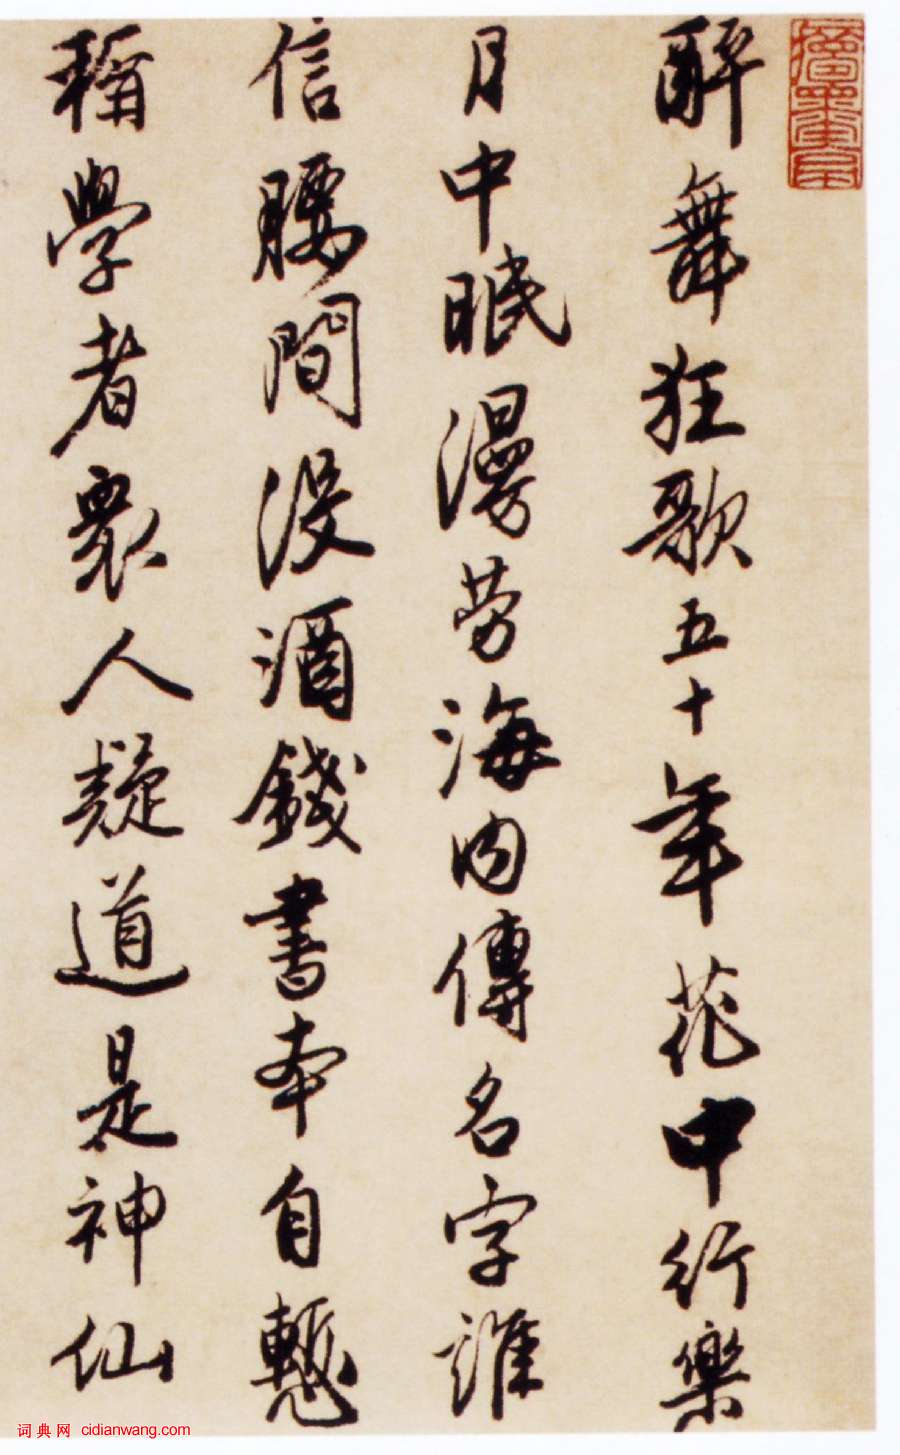 醉舞狂歌五十年花中行樂
月中眠漫勞海内傳名字誰
信腰間没酒錢書本自慙
稱學者衆人疑道是神仙
词典网 cidianwang.com